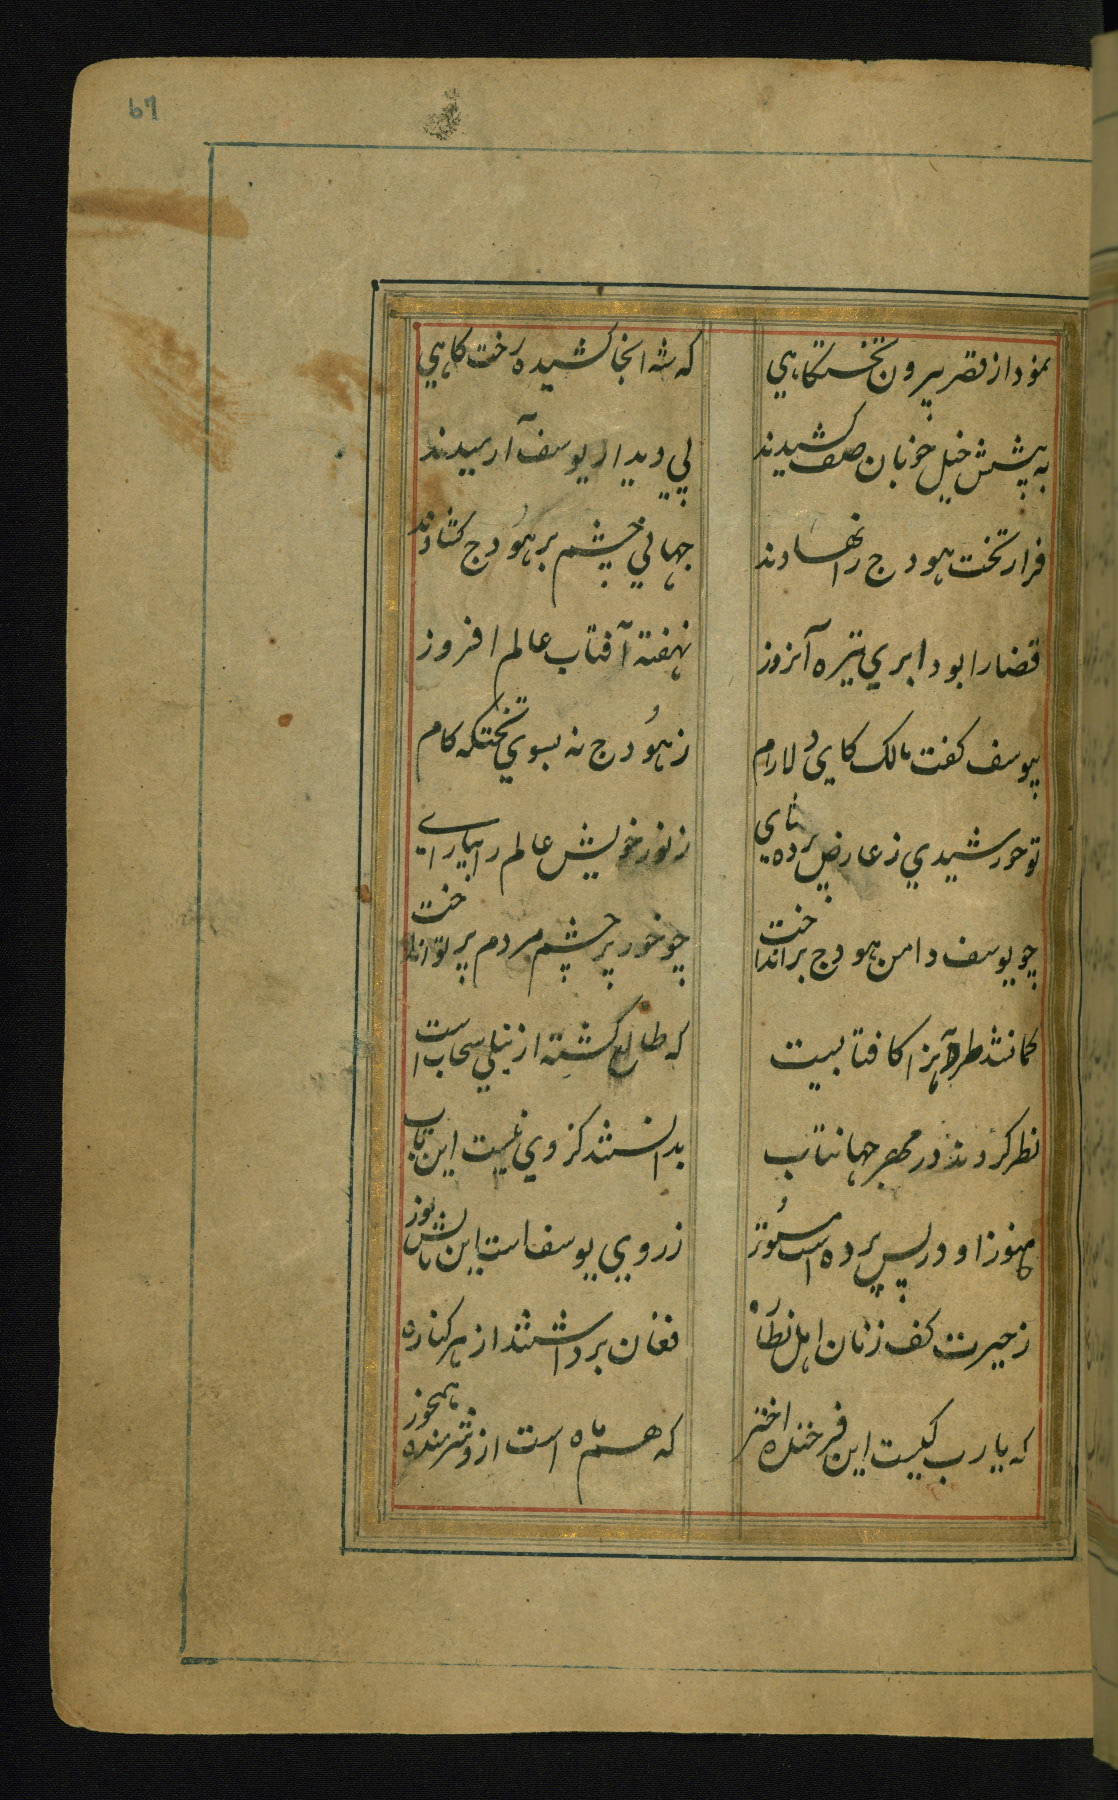 67
نمود از قصر بیرون تختگاهی که شه آنجا کشیده رخت گاهی
به پیشش خیل خوبان صف کشیدند پی دیدار یوسف آرمیدند
فراز تخت هودج را نهادند جهانی چشم بر هودج کشادند
قضا را بود ابری تیره آنروز نهفته آفتاب عالم افروز
بیوسف کفت مالک کای دلارام ز هودج نه بسوی تختکه کام
تو خورشیدی ز عارض پرده بکشای ز نور خویش عالم را بیارای
چو یوسف دامن هودج برانداخت چو خور بر چشم مردم پرتو انداخت
کمان شد کافتابیست که طالع کشته از نیلی سحاب است
نظر کردند در مهر جهانتاب بدانستند کز وی نیست این تاب
هنوز او در پس پرده است مستور ز روی یوسف است این تابش نور
ز حیرت کف زنان اهل نظاره فغان برداشتند از هر کناره
که یارب کیست این فرخنده اختر که هم ماه است ازو شرمنده هم خور